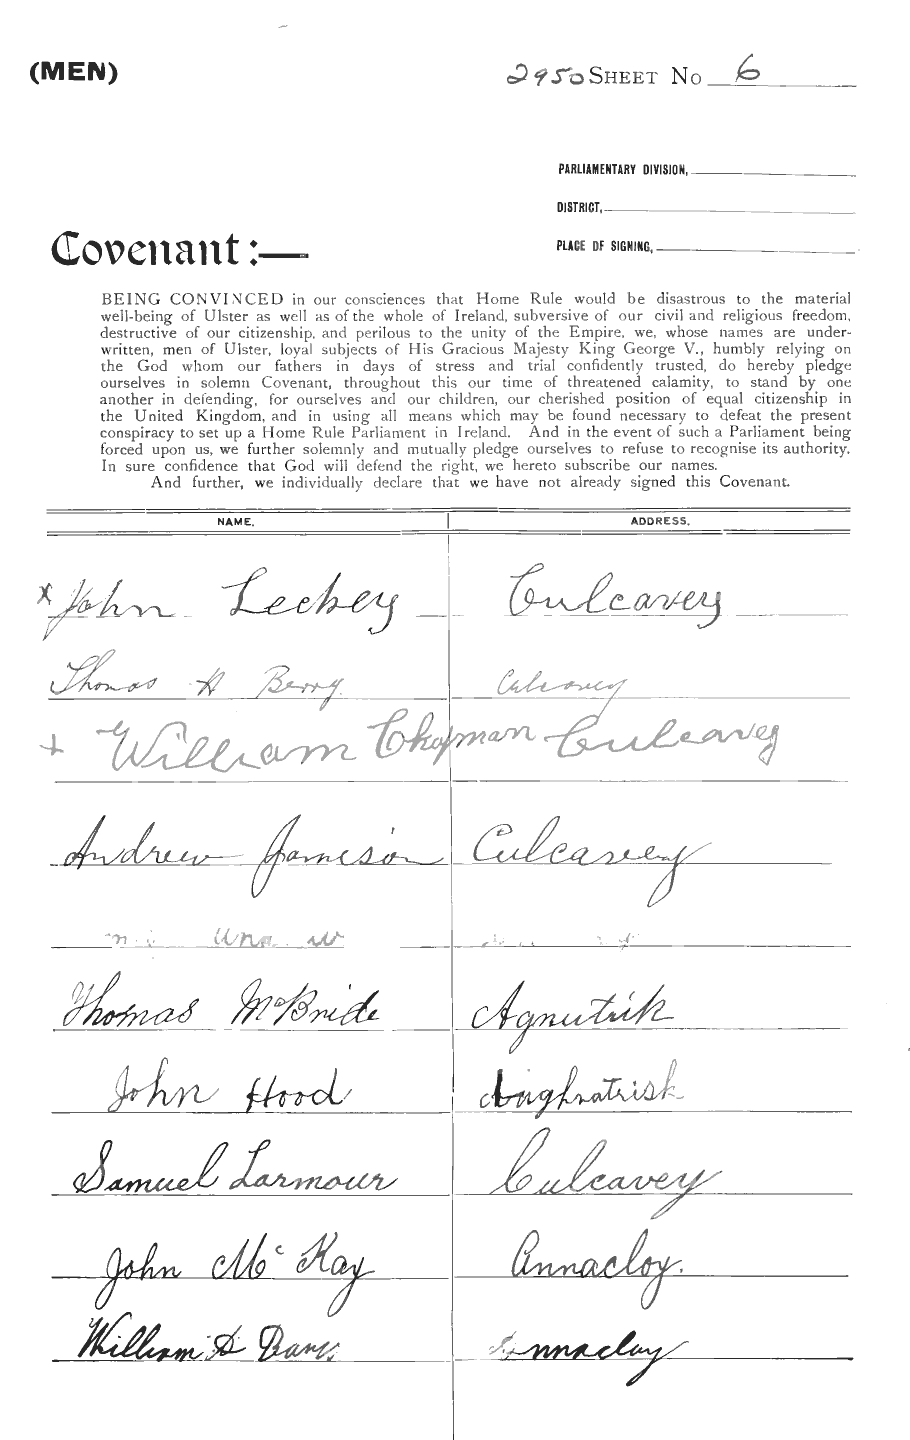 (MEN)
2950 SHEET No 6
PARLIAMENTARY DIVISION,
DISTRICT,
PLACE OF SIGNING,
Covenant :—
BEING CONVINCED in our consciences that Home Rule would be disastrous to the material
well-being of Ulster as well as of the whole of Ireland, subversive of our civil and religious freedom,
destructive of our citizenship, and perilous to the unity of the Empire, we, whose names are under-
written, men of Ulster, loyal subjects of His Gracious Majesty King George V., humbly relying on
the God whom our fathers in days of stress and trial confidently trusted, do hereby pledge
ourselves in solemn Covenant, throughout this our time of threatened calamity, to stand by one
another in defending, for ourselves and our children, our cherished position of equal citizenship in
the United Kingdom, and in using all means which may be found necessary to defeat the present
conspiracy to set up a Home Rule Parliament in Ireland. And in the event of such a Parliament being
forced upon us, we further solemnly and mutually pledge ourselves to refuse to recognise its authority.
In sure confidence that God will defend the right, we hereto subscribe our names.
And further, we individually declare that we have not already signed this Covenant.
NAME. ADDRESS.
x John Leckey Culcavey
Thomas H Berry
+ William Chapman Culcavey
Andrew Jamieson Culcavey
Thomas McBride
John Hood Aughnatrisk
Samuel Larmour Culcavey
John McKay Annacloy.
William Annacloy